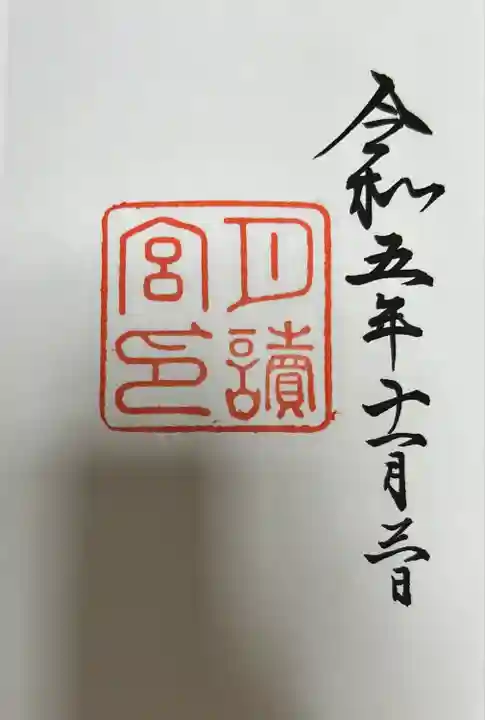 令和五年十一月三日
月讀
宮印